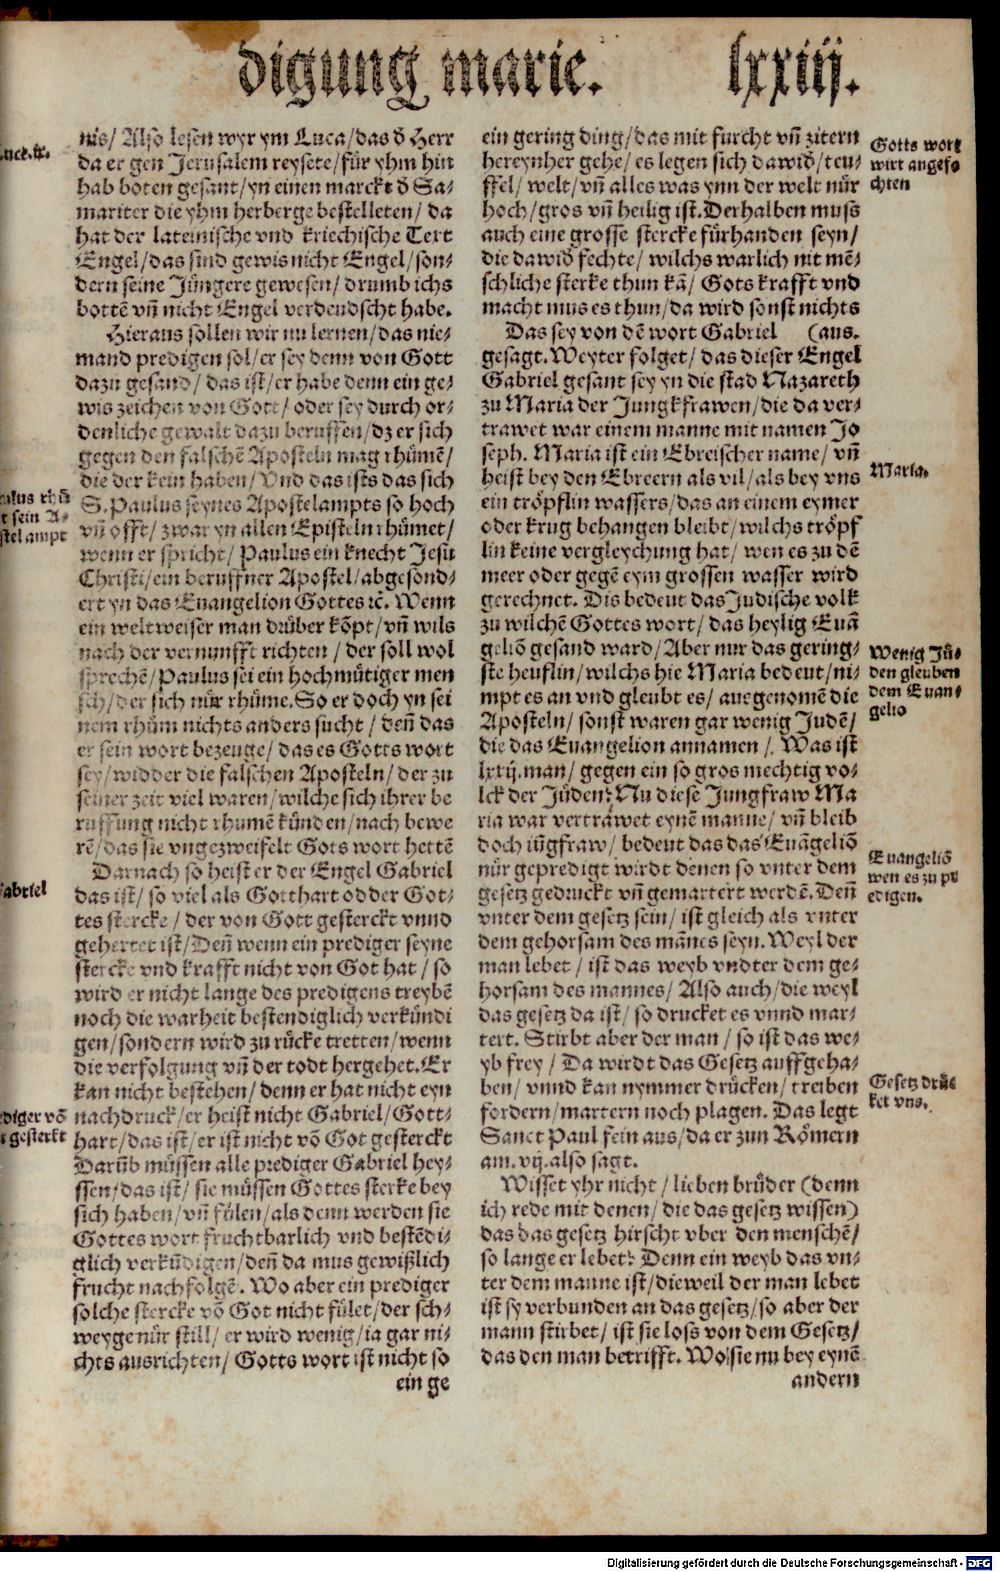 digung marie. lxxiiij.
nis/ Also lesen wyr ym Luca/das d̕ Herr
da er gen Jerusalem reysete/für yhm hin
hab boten gesant/yn einen marckt d̕ Sa-
mariter die yhm herberge bestelleten/ da
hat der lateinische vnd kriechische Text
Engel/das sind gewis nicht Engel/son-
dern seine Jüngere gewesen/ drumb ichs
bottē vñ nicht Engel verdeudscht habe.
Hieraus sollen wir nu lernen/das nie-
mand predigen sol/er sey denn von Gott
dazu gesand/ das ist/er habe denn ein ge-
wis zeichen von Gott/ oder sey durch or-
denliche gewalt dazu beruffen/dz er sich
gegen den falschē Aposteln mag rhümē/
die der kein haben/ Vnd das ists das sich
S. Paulus seynes Apostelampts so hoch
vñ offt/ zwar yn allen Episteln rhümet/
wenn er spricht/ Paulus ein knecht Jesu
Christi/ein beruffner Apostel/abgesond-
ert yn das Euangelion Gottes ꝛc̄. Wenn
ein weltweiser man drüber kōpt/vñ wils
nach der vernunfft richten/ der soll wol
sprechē/Paulus sei ein hochmütiger men
sch/der sich nür rhüme. So er doch yn sei
nem rhüm nichts anders sucht/ deñ das
er sein wort bezeuge/das es Gotts wort
sey/widder die falschen Aposteln/der zu
seiner zeit viel waren/wilche sich ihrer be
ruffung nicht rhumē künden/nach bewe
rē/das sie vngezweifelt Gots wort hettē
Darnach so heist er der Engel Gabriel
das ist/ so viel als Gotthart odder Got-
tes stercke/ der von Gott gesterckt vnnd
gehertet ist/Deñ wenn ein prediger seyne
stercke vnd krafft nicht von Got hat/ so
wird er nicht lange des predigens treybē
noch die warheit bestendiglich verkündi
gen/sondern wird zu rücke tretten/wenn
die verfolgung vñ der todt hergehet. Er
kan nicht bestehen/denn er hat nicht eyn
nachdruck/er heist nicht Gabriel/Gott-
hart/das ist/er ist nicht vō Got gesterckt
Darüb müssen alle prediger Gabriel hey-
ssen/das ist/ sie müssen Gottes sterke bey
sich haben/vñ fülen/als denn werden sie
Gottes wort fruchtbarlich vnd bestēdi-
glich verkündigen/deñ da mus gewißlich
frucht nachfolgē. Wo aber ein prediger
solche stercke vō Got nicht fület/der sch-
weyge nür still/ er wird wenig/ia gar ni-
chts ausrichten/ Gotts wort ist nicht so
ein ge
Luce.ix.
rhü
t sein A-
stel ampt
abriel
ediger vō
gesterkt
ein gering ding/das mit furcht vñ zitern
hereynher gehe/es legen sich dawid̕/teu-
ffel/ welt/vñ alles was ynn der welt nür
hoch/gros vñ heilig ist. Derhalben muss
auch eine grosse stercke fürhanden seyn/
die dawid̕ fechte/wilchs warlich nit mē-
schliche sterke thun kā/ Gots krafft vnd
macht mus es thun/da wird sonst nichts
Das sey von dē wort Gabriel (aus.
gesagt. Weyter folget/das dieser Engel
Gabriel gesant sey yn die stad Nazareth
zu Maria der Jungkfrawen/die da ver-
trawet war einem manne mit namen Jo
seph. Maria ist ein Ebreischer name/ vñ
heist bey den Ebreern als vil/als bey vns
ein tröpflin wassers/das an einem eymer
oder krug behangen bleibt/wilchs tröpf
lin keine vergleychung hat/ wen es zu dē
meer oder gegē eym grossen wasser wird
gerechnet. Dis bedeut das Judische volk
zu wilchē Gottes wort/das heylig Euā
geliō gesand ward/Aber nur das gering-
ste heuflin/wilchs hie Maria bedeut/ni-
mpt es an vnd gleubt es/ ausgenomē die
Aposteln/ sonst waren gar wenig Judē/
die das Euangelion annamen/ Was ist
lxxij. man/ gegen ein so gros mechtig vo-
lck der Jüden? Nu diese Jungfraw Ma
ria war vertrawet eynē manne/ vñ bleib
doch iūgfraw/ bedeut das das Euāgeliō
nür gepredigt wirdt denen so vnter dem
gesetz gedruckt vñ gemartert werdē. Deñ
vnter dem gesetz sein/ ist gleich als vnter
dem gehorsam des māñes seyn. Weyl der
man lebet/ ist das weyb vndter dem ge-
horsam des mannes/ Also auch/die weyl
das gesetz da ist/ so drucket es vnnd mar-
tert. Stirbt aber der man/ so ist das we-
yb frey/ Da wirdt das Gesetz auffgeha-
ben/ vnnd kan nymmer drücken/ treiben
fordern/martern noch plagen. Das legt
Sanct Paul fein aus/da er zun Römern
am. vij. also sagt.
Wisset yhr nicht/ lieben brüder (denn
ich rede mit denen/die das gesetz wissen)
das das gesetz hirscht vber den menschē/
so lange er lebet? Denn ein weyb das vn-
ter dem manne ist/dieweil der man lebet
ist sy verbunden an das gesetz/so aber der
mann stirbet/ ist sie loss von dem Gesetz/
das den man betrifft. Wo sie nu bey eynē
andern
Gotts wort
wirt angefo
chten
Maria.
Wenig Jü-
den gleuben
dem Euan-
gelio
Euangeliō
wen es zu pr
edigen.
Gesetz drüc
ket vns.
Digitalisierung gefördert durch die Deutsche Forschungsgemeinschaft - DFG